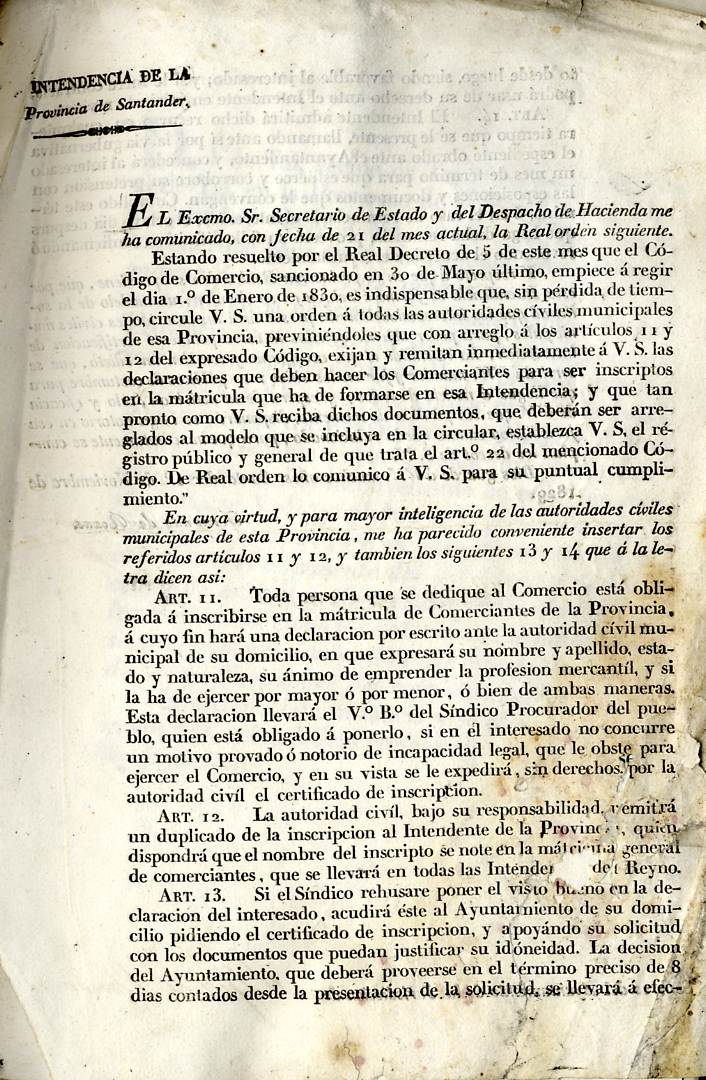 INTENDENCIA DE LA
Provincia de Santander.
EL Excmo. Sr. Secretario de Estado y del Despacho de Hacienda me
ha comunicado, con fecha de 21 del mes actual, la Real orden siguiente.
Estando resuelto por el Real Decreto de 5 de este mes que el Có-
digo de Comercio, sancionado en 30 de Mayo último, empiece á regir
el dia 1.º de Enero de 1830, es indispensable que, sin pérdida de tiem-
po, circule V. S. una orden á todas las autoridades cíviles municipales
de esa Provincia, previniéndoles que con arreglo á los artículos 11 y
12 del expresado Código, exijan y remitan inmediatamente á V. S. las
declaraciones que deben hacer los Comerciantes para ser inscriptos
en la mátricula que ha de formarse en esa Intendencia; y que tan
pronto como V. S. reciba dichos documentos, que deberán ser arre-
glados al modelo que se incluya en la circular, establezca V. S. el ré-
gistro público y general de que trata el art.º 22 del mencionado Có-
digo. De Real orden lo comunico á V. S. para su puntual cumpli-
miento."
En cuya virtud, y para mayor inteligencia de las autoridades cíviles
municipales de esta Provincia, me ha parecido conveniente insertar los
referidos artículos 11 y 12, y tambien los siguientes 13 y 14 que á la le-
tra dicen asi:
ART. 11. Toda persona que se dedique al Comercio está obli-
gada á inscribirse en la mátricula de Comerciantes de la Provincia,
á cuyo fin hará una declaracion por escrito ante la autoridad cívil mu-
nicipal de su domicilio, en que expresará su nombre y apellido, esta-
do y naturaleza, su ánimo de emprender la profesion mercantíl, y si
la ha de ejercer por mayor ó por menor, ó bien de ambas maneras.
Esta declaracion llevará el V.º B.º del Síndico Procurador del pue-
blo, quien está obligado á ponerlo, si en el interesado no concurre
un motivo provado ó notorio de incapacidad legal, que le obste para
ejercer el Comercio, y en su vista se le expedirá, sin derechos, por la
autoridad civíl el certificado de inscripcion.
ART. 12. La autoridad civíl, bajo su responsabilidad, remitirá
un duplicado de la inscripcion al Intendente de la Provincia, quien
dispondrá que el nombre del inscripto se note en la mátricula general
de comerciantes, que se llevará en todas las del Reyno.
ART. 13. Si el Síndico rehusare poner el visto bueno en la de-
claracion del interesado, acudirá éste al Ayuntamiento de su domi-
cilio pidiendo el certificado de inscripcion, y apoyándo su solicitud
con los documentos que puedan justificar su idóneidad. La decision
del Ayuntamiento, que deberá proveerse en el término preciso de 8
dias contados desde la presentacion de la solicitud, se llevará á efec-